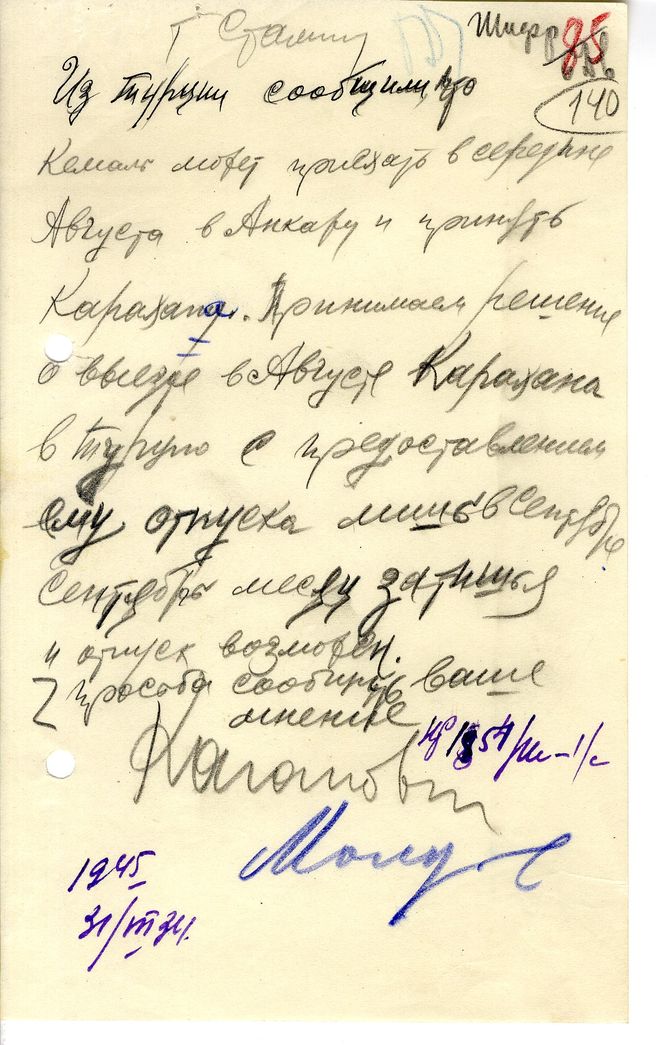 т Сталину
Шифр
85
140
Из турции сообщили, что
Кемаль может приехать в середине
Августа в Анкару и принять
Карахана. Принимаем решение
о выезде в Августе Карахана
в турцию с предоставлением
ему отпуска лишь в сентябре
Сентябрь месяц затишья
и отпуск возможен.
просьба сообщить ваше
мнение
Каганович
Молотов
1945
31/VII 34.